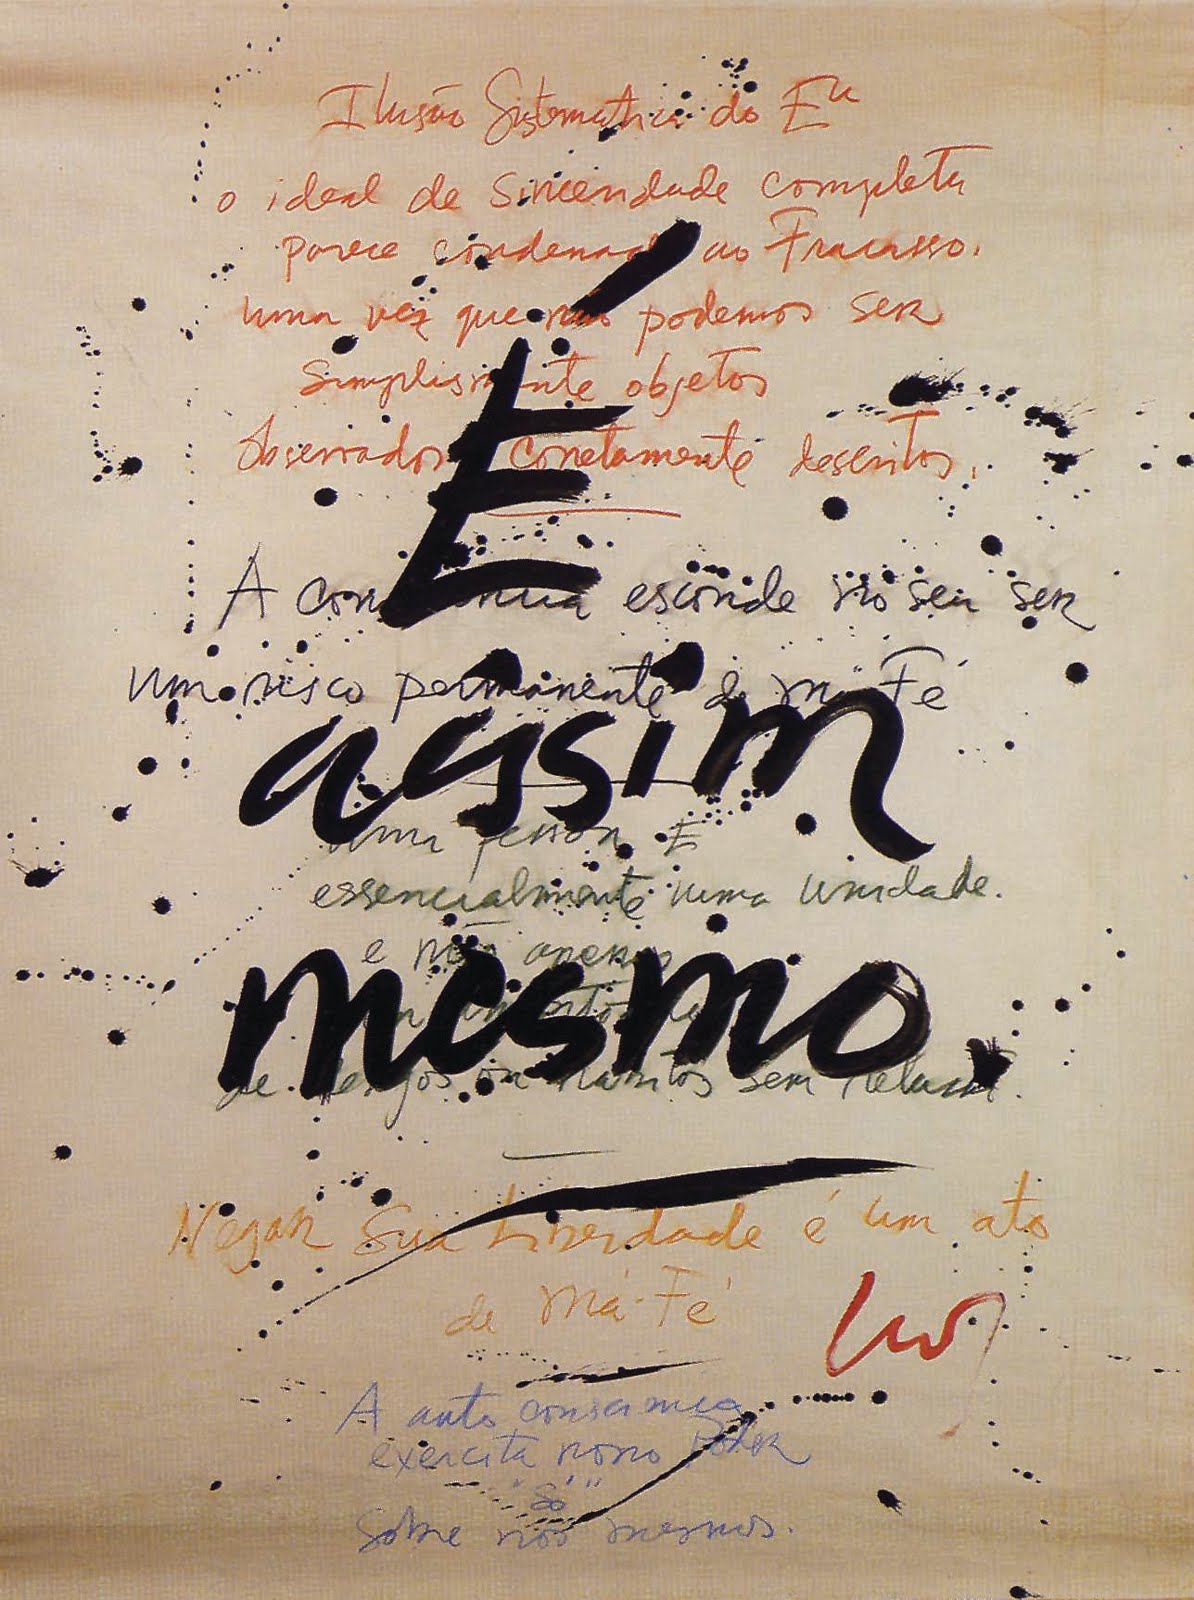 Ilusão Sistematica do Eu
o ideal de sinceridade completa
parece condenado ao Fracasso.
uma vez que não podemos ser
simplismente objetos
observados corretamente descritos.
É
A consciencia esconde no seu ser
um risco permanente de Má Fé
assim
uma pessoa É
essencialmente uma unidade.
e não apenas
mesmo.
de desejos ou habitos sem relação.
Negar sua Liberdade é um ato
de Má-Fé
A auto consciencia
exercita nosso Poder
"só"
sobre nós mesmos.